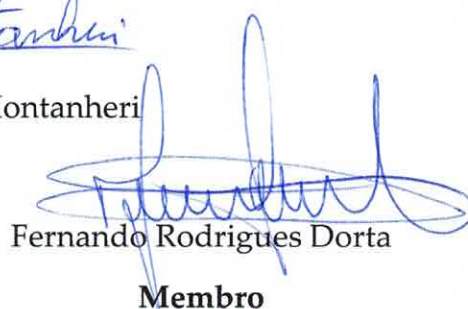 Montanheri
Fernando Rodrigues Dorta
Membro